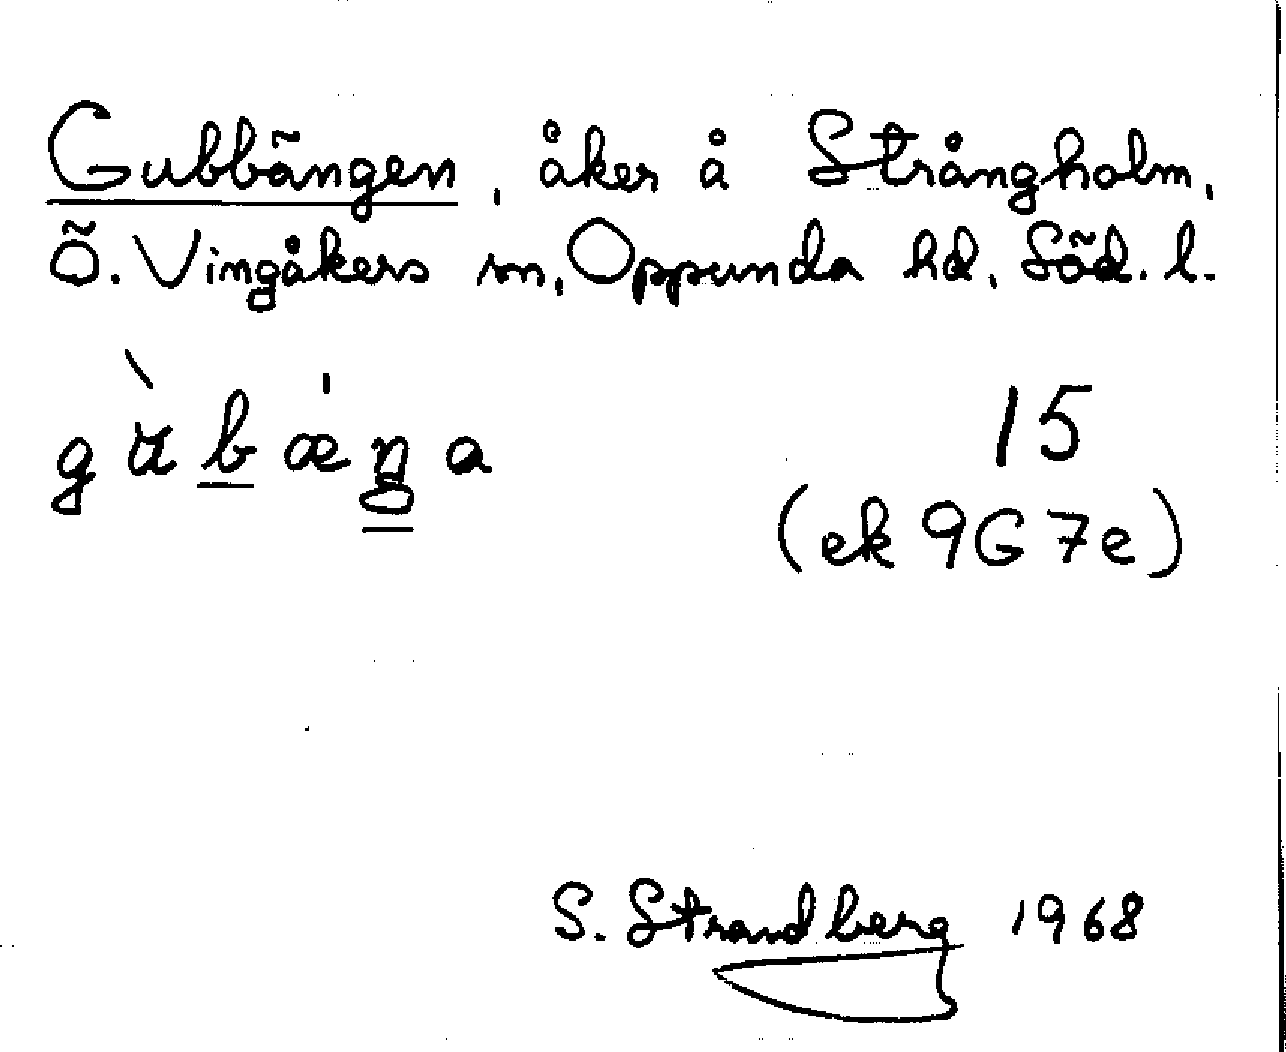 Gubbängen, åker å Strångholm,
Ö. Vingåkers sn, Oppunda hd, Söd. l.
15
(ek 9G 7e)
S. Strandberg 1968